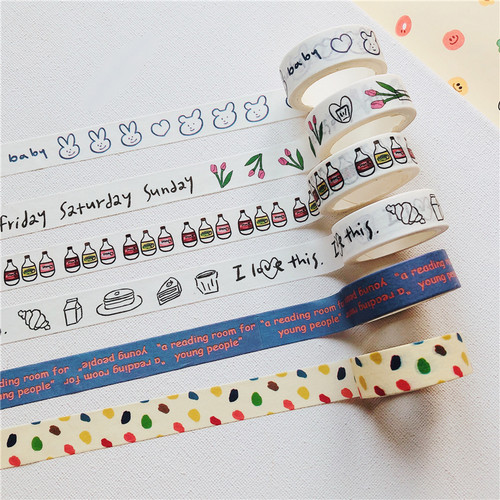 baby
baby
friday saturday sunday
I love this.
I love this.
"a reading room for young people"
"a reading room for young people"
"a reading room for young people"
"a reading room for young people"
"a reading
young people"